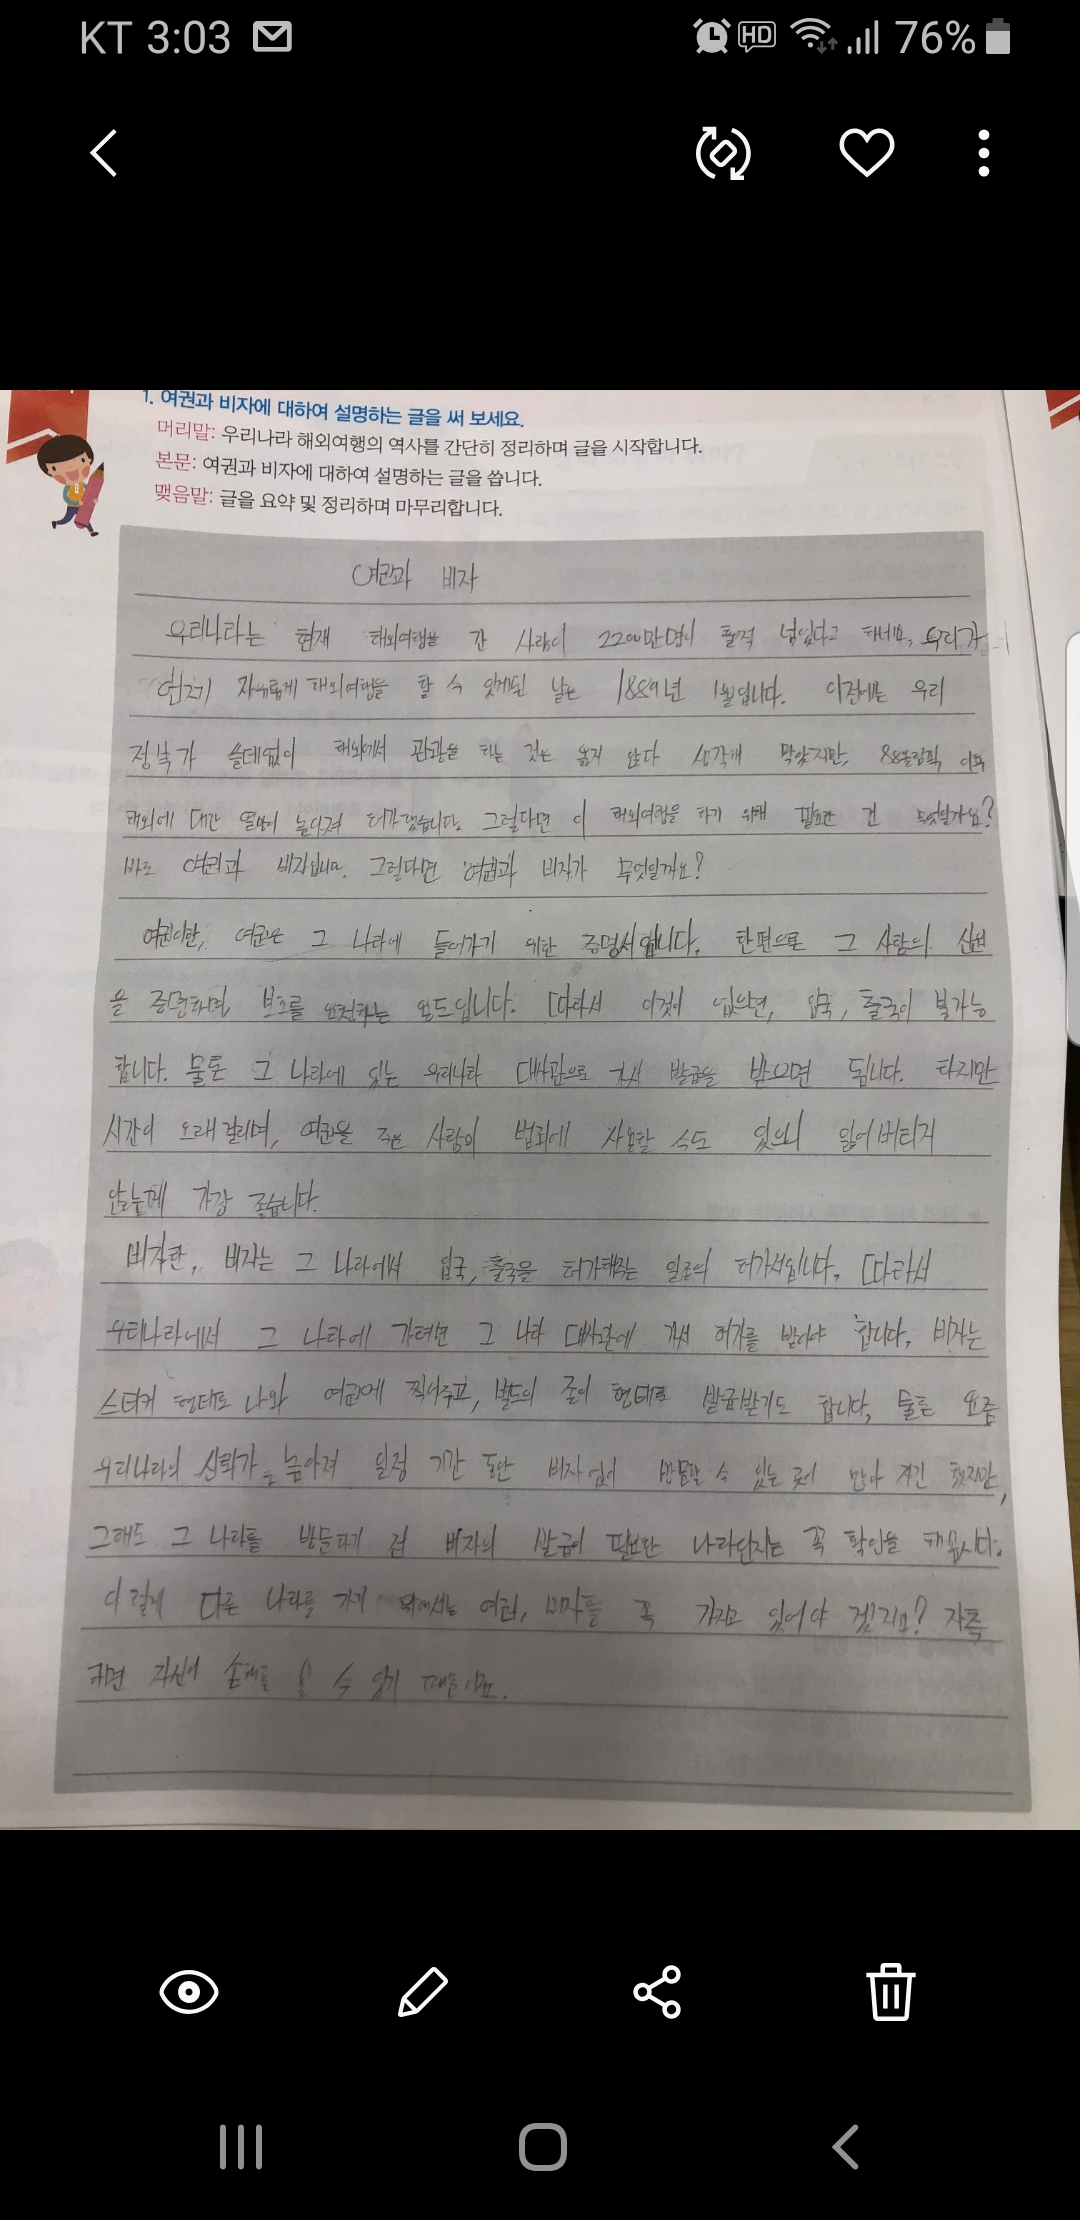 KT 3:03
HD 76%
1. 여권과 비자에 대하여 설명하는 글을 써 보세요.
머리말: 우리나라 해외여행의 역사를 간단히 정리하며 글을 시작합니다.
본문: 여권과 비자에 대하여 설명하는 글을 씁니다.
맺음말: 글을 요약 및 정리하며 마무리합니다.
여권과 비자
우리나라는 현재 해외여행을 간 사람이 2200만명이 훌쩍 넘었다고 하네요, 우리가
언제 자유롭게 해외여행을 할 수 있게된 날은 1889년 1월입니다. 이전에는 우리
정부가 쓸데없이 해외에서 관광을 하는 것은 옳지 않다 생각해 막았지만, 88올림픽 이후
해외에 대한 열망이 높아져 허가했습니다. 그렇다면 이 해외여행을 하기 위해 필요한 건 무엇일까요?
바로 여권과 비자입니다. 그렇다면 여권과 비자가 무엇일까요?
여권이란, 여권은 그 나라에 들어가기 위한 증명서입니다, 한편으로 그 사람의 신원
을 증명하며, 보호를 요청하는 용도입니다. 따라서 이것이 없으면, 입국, 출국이 불가능
합니다. 물론 그 나라에 있는 우리나라 대사관으로 가서 발급을 받으면 됩니다. 하지만
시간이 오래 걸리며, 여권을 주운 사람이 범죄에 사용할 수도 있으니 잃어버리지
않는게 가장 좋습니다.
비자란, 비자는 그 나라에서 입국, 출국을 허가해주는 일종의 허가서입니다, 따라서
우리나라에서 그 나라에 가려면 그 나라 대사관에 가서 허가를 받아야 합니다, 비자는
스티커 형태로 나와 여권에 찍어주고, 별도의 종이 형태로 발급받기도 합니다, 물론 요즘
우리나라의 신뢰가 높아져 일정 기간 동안 비자 없이 방문할 수 있는 곳이 많아 지긴 했지만,
그래도 그 나라를 방문하기 전 비자의 발급이 필요한 나라인지는 꼭 확인을 해봅시다.
이렇게 다른 나라를 가기 위해서는 여권, 비자를 꼭 가지고 있어야 겠지요? 자칫
하면 자신이 손해를 볼 수 있기 때문이죠.